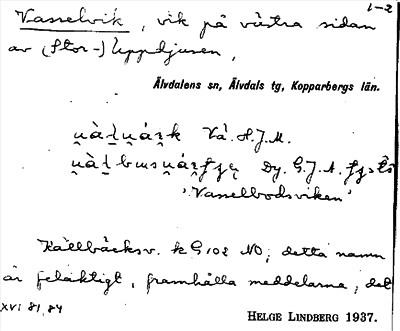 1-2
Vasselvik, vik på västra sidan
av (Stor-) Uppljusen,
Älvdalens sn, Älvdals tg, Kopparbergs län.
Vå. H.J.M.
Dy. G.J.A.
'Vasselbodsviken'
Källbäcksv. k G 102 NO; detta namn
är felaktigt, framhålla meddelarna, det
XVI 81, 84
HELGE LINDBERG 1937.